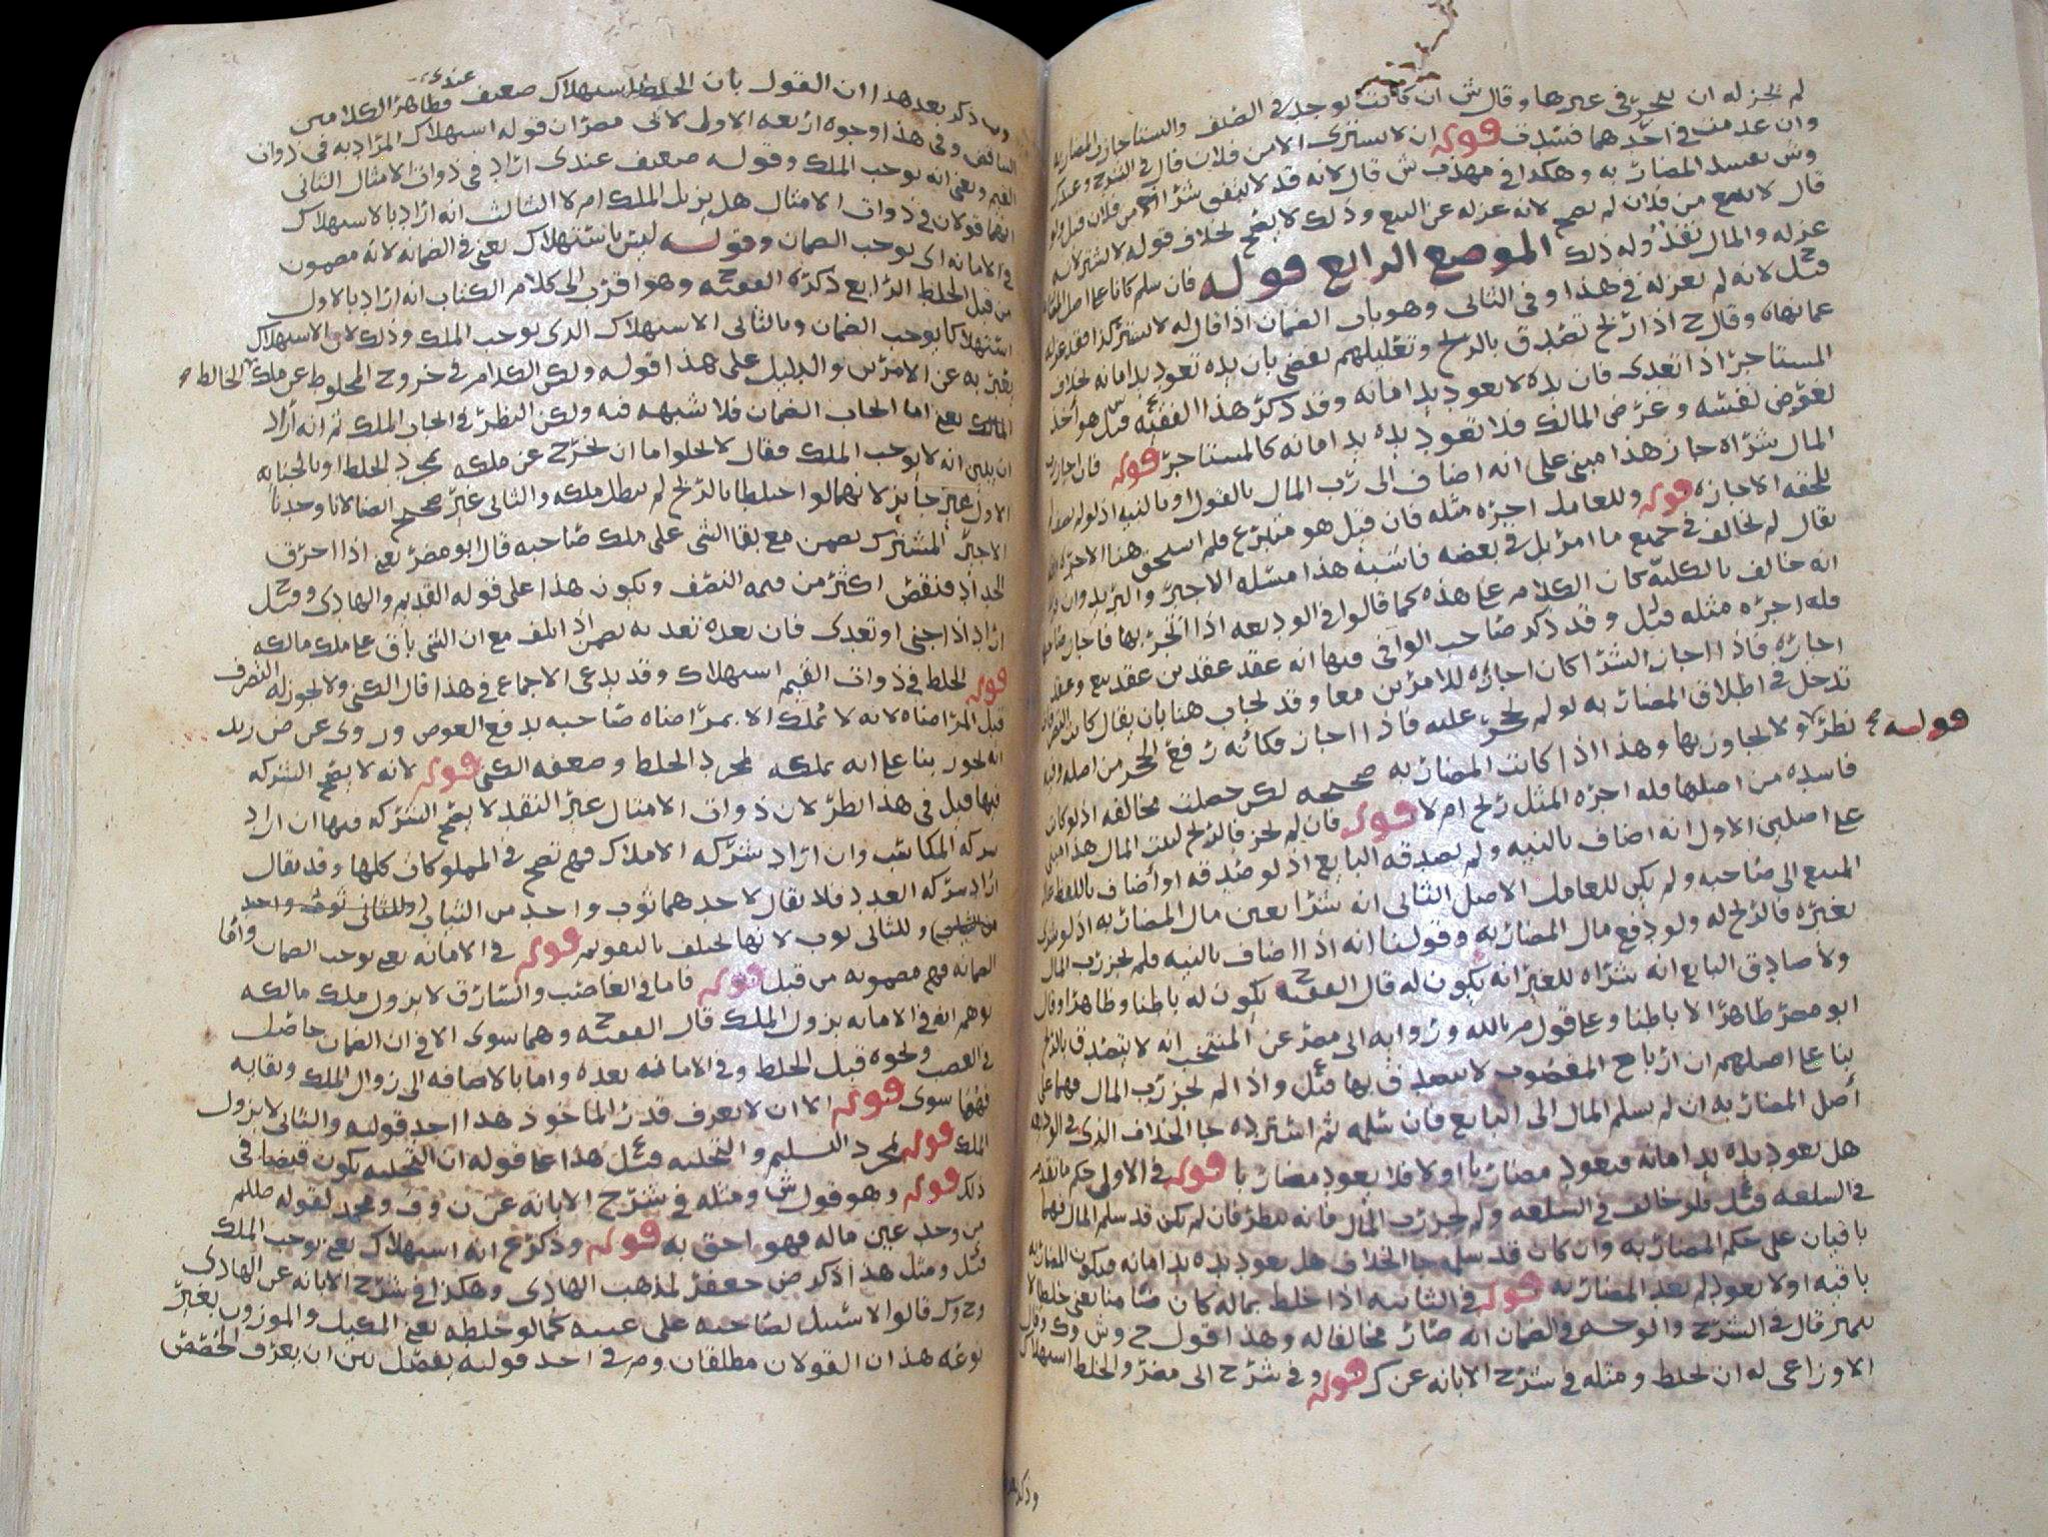 لم يجز له ان يتجر في غيرها وقال ش ان كانت توجد في الصيف والشتا جازت المضاربه
وان عدمت في احدهما فسدت قوله ان لا يشتري الا من فلان قال في الشرح وعند
وش تفسد المضاربه وهكذا في مهذب ش قال لانه قد لا يتفق شرا من فلان قيل ولو
قال لا تبع من فلان لم يصح لانه عزله عن البيع وذلك لا يصح بخلاف قوله لا تشتر لانه
عزله والمال نقد وله ذلك الموضع الرابع قوله فان سلم كانا على اصل
قيل لانه لم يعزله في هذا وفي الثاني وهو باب الضمان اذا قال له لا تشتر كذا فقد عزله
عما نهاه وقال ح اذا ربح تصدق بالربح وتعليلهم يقضي بان يده تعود يد امانه بخلاف
المستاجر اذا تعدى فان يده لا تعود يد امانه وقد ذكر هذا الفقيه ح قيل هو اخذ
لغرض نفسه وغرض المالك فلا تعود يده يد امانه كالمستاجر قوله فان اجاز رب
المال شراه جاز هذا مبني على انه اضاف الى رب المال بالقول او بالنيه اذ لو لم يضف لم
تلحقه الاجازه قوله وللعامل اجره مثله فان قيل هو متبرع فلم استحق هنا الاجره
يقال لم يخالف في جميع ما امر بل في بعضه فاشبه هذا مسئله الاجير والبريد وان
انه خالف بالكليه كان الكلام على هذه كما قالوا في الوديعه اذا اتجر بها فاجاز
فله اجره مثله قيل وقد ذكر صاحب الوافي فيها انه عقد عقدين عقد بيع وعقد
اجاره فاذا اجاز الشرا كان اجازه للامرين معا وقد يجاب هنا بان يقال كان
تدخل في اطلاق المضاربه لو لم يحجر عليه فاذا اجاز فكانه رفع الحجر من اصله وفيه
نظر قوله ولا يجاوز بها وهذا اذا كانت المضاربه صحيحه لكن حصلت مخالفه اذ لو كان
فاسده من اصلها فله اجره المثل ربح ام لا قوله فان لم يجز فالربح لبيت المال هذا مبني
على اصلين الاول انه اضاف بالنيه ولم يصدقه البايع اذ لو صدقه او اضاف باللفظ
المبيع الى صاحبه ولم يكن للعامل الاصل الثاني انه شرا بعين مال المضاربه اذ لو
بغيره فالربح له ولو دفع مال المضاربه وقولنا انه اذا اضاف بالنيه فلم يجز رب المال
ولا صادق البايع انه شراه للغير انه يكون له قال الفقيه ح يكون له باطنا وظاهرا وقال
ابو مضر ظاهرا لا باطنا وعلى قول م بالله ورواية ابي مضر عن المنتخب انه لا يتصدق بالربح
بنا على اصلهم ان ارباح المغصوب لا يتصدق بها قيل واذا لم يجز رب المال فهما على
اصل المضاربه ان لم يسلم المال الى البايع فان سلمه ثم استرده جا الخلاف الذي في الوديعه
هل تعود يده يد امانه فيعود مضاربا او لا فلا يعود مضاربا قوله في الاولى حكم ما تقدم
في السلعه قيل فلو خالف في السلعه ولم يجز رب المال فانه ينظر فان لم يكن قد سلم المال فهما
باقيان على حكم المضاربه وان كان قد سلمه جا الخلاف هل تعود يده يد امانه فتكون المضاربه
باقيه او لا تعود لم تعد المضاربه قوله في الثانيه اذا خلط بماله كان ضامنا يعني خلطا لا
يتميز قال في الشرح والوجه في الضمان انه صار مخالفا له وهذا قول ح وش وك وقال
الاوزاعي له ان يخلط ومثله في شرح الابانه عن ك قوله وفي شرح ابي مضر والخلط استهلاك
وذكر
وما ذكر بعد هذا ان القول بان الخلط استهلاك ضعيف عندي فظاهر الكلامين
التناقض وفي هذا وجوه اربعه الاولى لابي مضر ان قوله استهلاك المراد به في ذوات
القيم ويعني انه يوجب الملك وقوله ضعيف عندي اراد في ذوات الامثال الثاني
انهما قولان في ذوات الامثال هل يزيل الملك ام لا الثالث انه اراد بالاستهلاك
في الامانه اي يوجب الضمان وقوله ليس باستهلاك يعني في الضمانه لانه مضمون
من قبل الخلط الرابع ذكره الفقيه ح وهو اقرب الى كلام الكتاب انه اراد بالاول
استهلاكا يوجب الضمان وبالثاني الاستهلاك الذي يوجب الملك وذلك لان الاستهلاك
يعبر به عن الامرين والدليل على هذا قوله ولكن الكلام في خروج المخلوط عن ملك الخالط
المالك يعني اما ايجاب الضمان فلا شبهه فيه ولكن النظر في ايجاب الملك ثم انه اراد
ان يبين انه لا يوجب الملك فقال لا يخلوا اما ان يخرج عن ملكه بمجرد الخلط او بالجنايه
الاول غير جايز لانهما لو اختلطا بالريح لم يبطل ملكه والثاني غير صحيح ايضا لانا وجدنا
الاجير المشترك يضمن مع بقا الشي على ملك صاحبه قال ابو مضر يعني اذا احرق
الحداد فنقص اكثر من قيمه النصف ويكون هذا على قوله القديم والهادي وقيل
اراد اذا جنى او تعدى فان بعده تعديه يضمن اذا تلف مع ان الشي باق على ملك مالكه
قوله الخلط في ذوات القيم استهلاك وقد يدعى الاجماع في هذا قال الكني ولا يجوز له التصرف
قبل المراضاه لانه لا يملك الا بمراضاه صاحبه بدفع العوض وروى عن ض زيد
انه يجوز بنا على انه يملكه بمجرد الخلط وضعفه الكني قوله لانه لا يصح الشركه
فيها قيل في هذا نظر لان ذوات الامثال غير النقد لا يصح الشركه فيها ان اراد
شركه المكاسب وان اراد شركه الاملاك فهي تصح في المملوكات كلها وقد يقال
اراد شركه العدد فلا يقال لاحدهما ثوب واحد من الثياب
وللثاني ثوب لانها تختلف بالتقويم قوله في الامانه يعني يوجب الضمان واما
الضمانه فهي مضمونه من قبل قوله فاما في الغاصب والسارق لا يزول ملك مالكه
يوهم انه في الامانه يزول الملك قال الفقيه ح وهما سوى الا في ان الضمان حاصل
في الغصب ونحوه قبل الخلط وفي الامانه بعده واما بالاضافه الى زوال الملك وبقايه
فهما سوى قوله الا ان لا يعرف قدر الماخوذ هذا احد قوليه والثاني لا يزول
الملك قوله بمجرد التسليم والتخليه قيل هذا على قوله ان التخليه يكون قبضا في
ذلك قوله وهو قول ش ومثله في شرح الابانه عن ن وف ومحمد لقوله صللم
من وجد عين ماله فهو احق به قوله وذكر ع انه استهلاك يعني يوجب الملك
قيل ومثل هذا ذكر ض جعفر لمذهب الهادي وهكذا في شرح الابانه عن الهادي
وح وك قالوا لا سبيل لصاحبه على عينه كما لو خلطه يعني المكيل والموزون بغير
نوعه هذان القولان مطلقان وم في احد قوليه يفصل بين ان يعرف الحصص